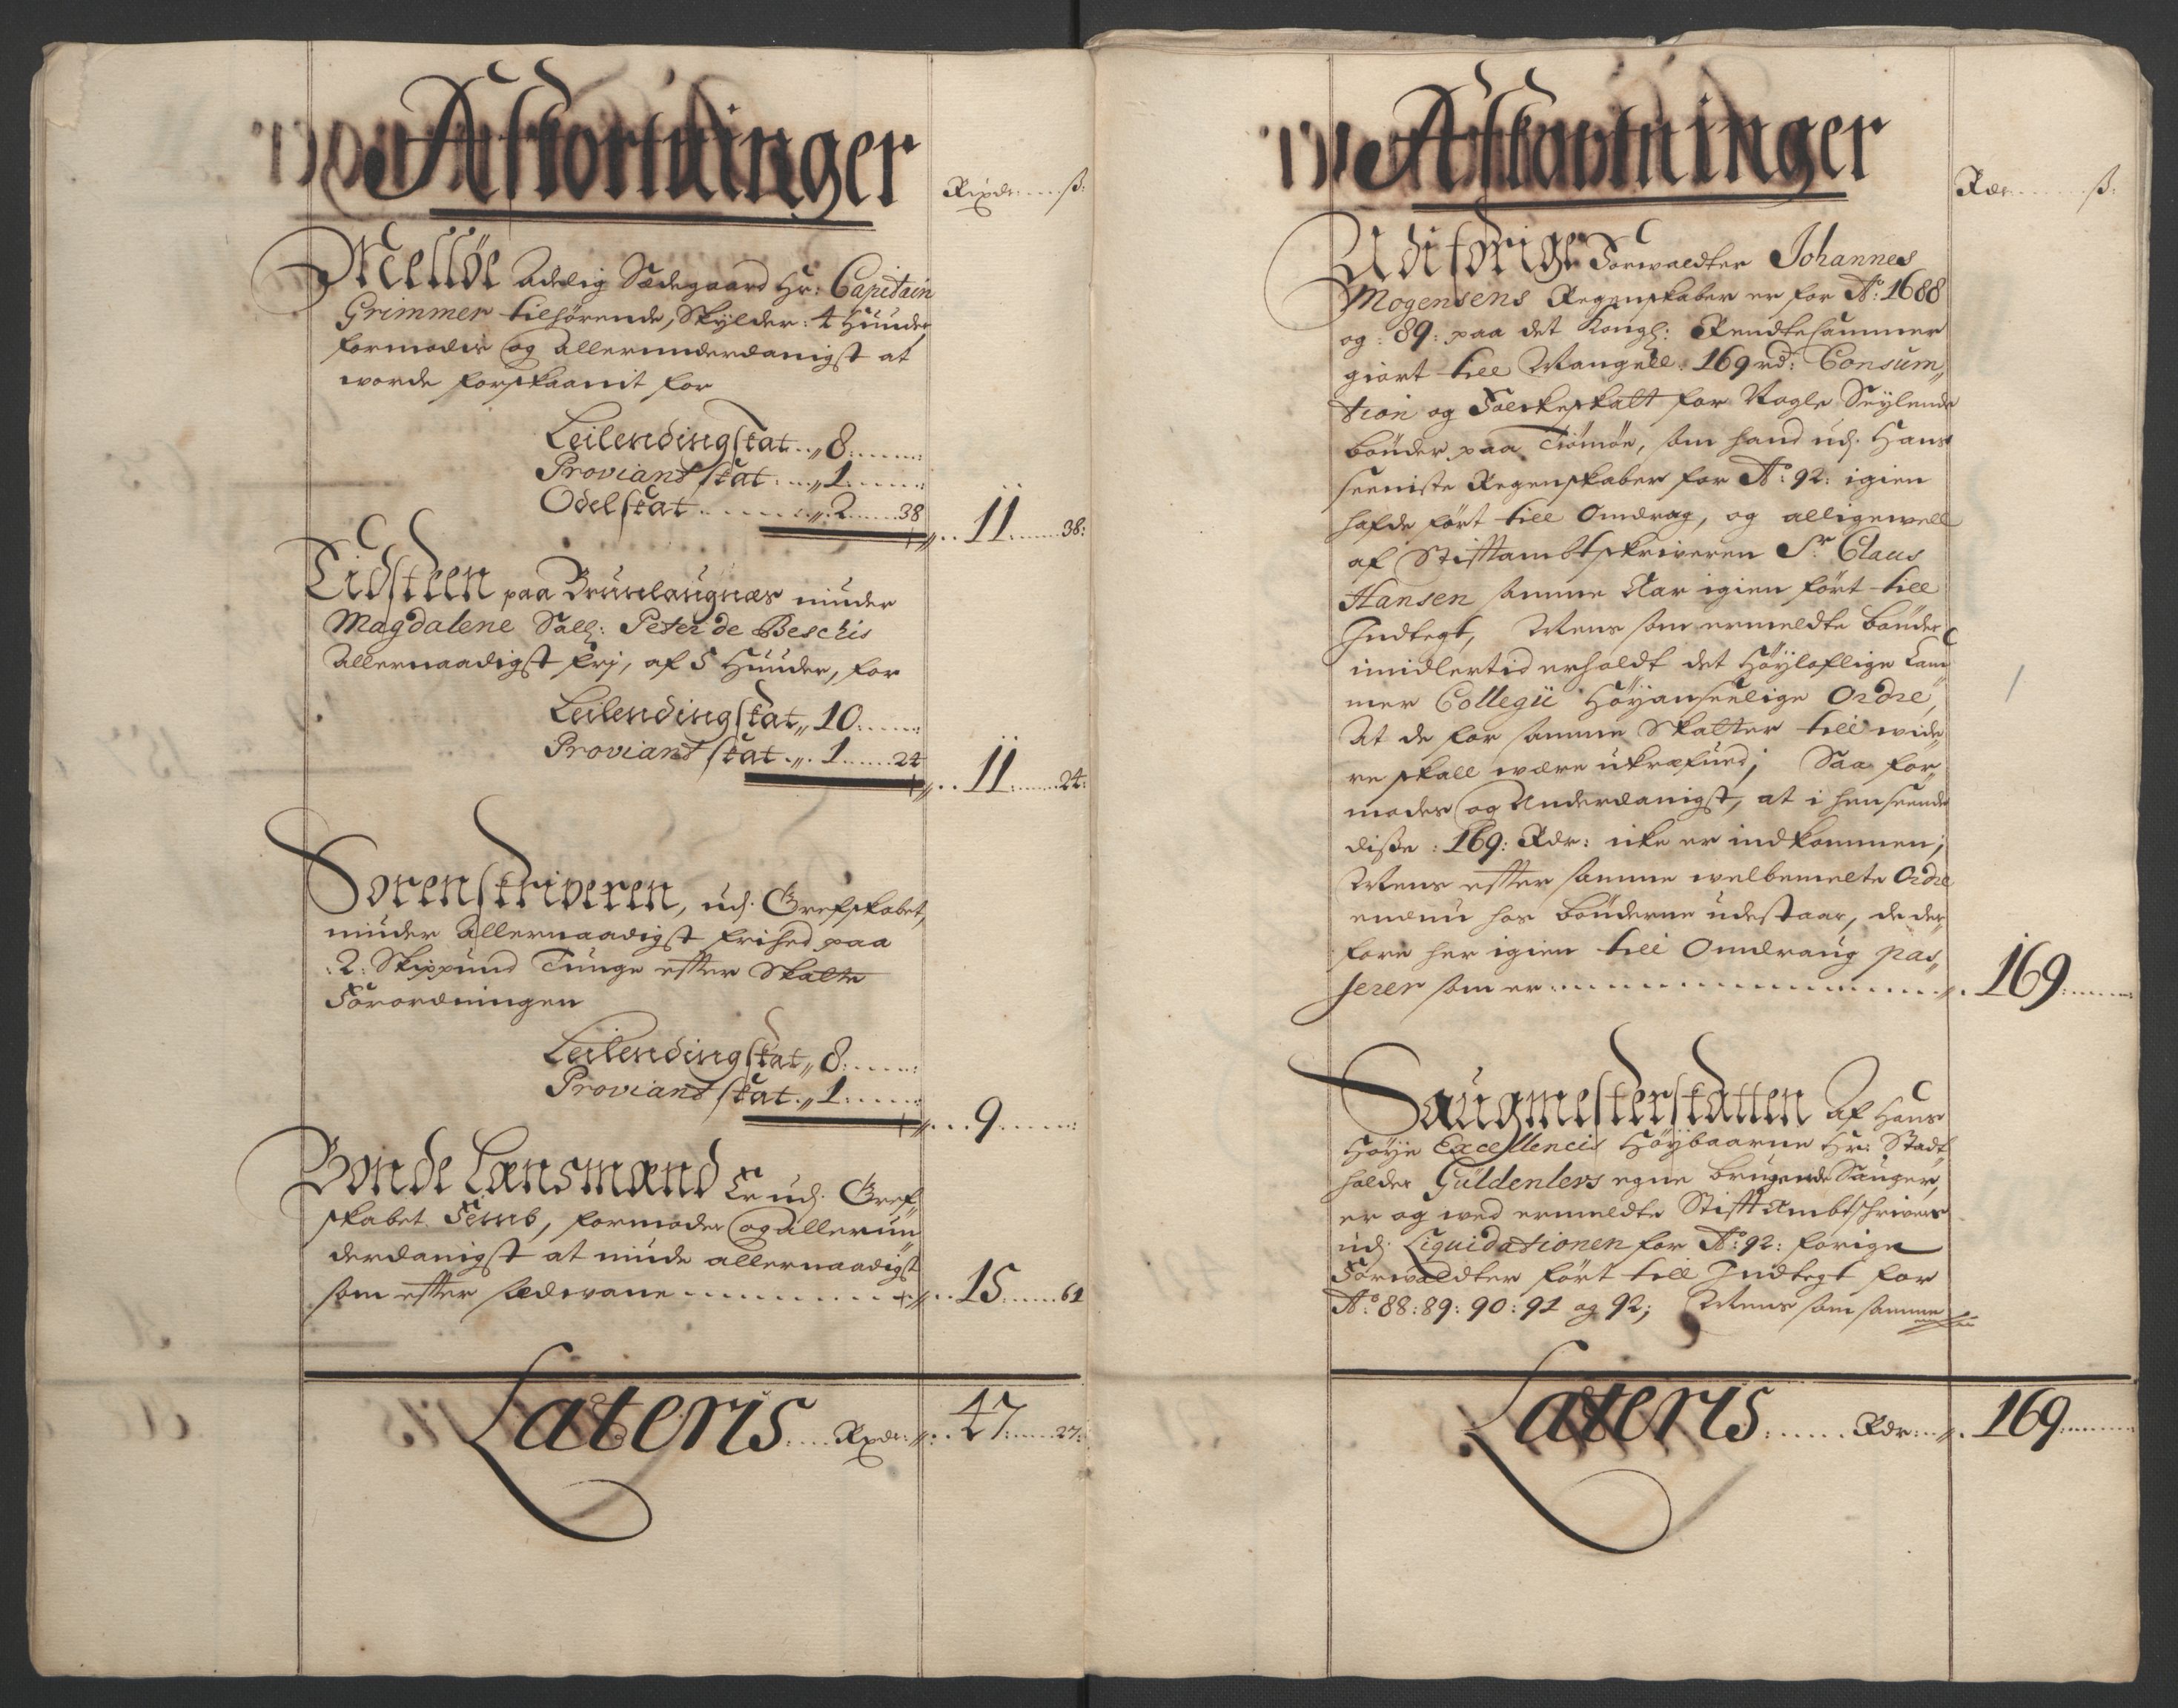 Afkortninger
Rixdr: ß:
Melløe Adelig Sædegaard Hr: Capitain
Grimmer tilhørende, Skylder: 4 Huuder
formodis og allerunderdanigst at
worde forskaanit for
Leilendingskat „ 8
Proviantskat „ 1
Odelskat „ 2 38
11 38:
Tidsteen paa Brunlaugnæs niuder
Magdalene Sall: Peter de Beschis
Allernaadigst frj, af 5 Huuder, for
Leilendingskat „ 10
Proviantskat „ 1 24
11 24:
Sorenskriveren, udj Grefskabet,
niuder Allernaadigst frihed paa
:2: Skippund Tunge effter Skatte
Forordningen
Leilendingskat „ 8
Proviantskat „ 1
9
Bonde Lænsmænd Er udj Gref„
skabet Femb, formoder og allerun„
derdanigst at niude allernaadigst
som effter sædwane 15 61
Lateris Rixdr: 47 27:
Afkortninger
Rdr ß:
Udi forige Forwaldter Johannes
Mogensens Regenskaber er for Ao: 1688
og :89: paa det Kongl: Rendtecammer
giort till Mangell: 169 rd: Consum„
tion og Folckeskatt for Nogle Seylende
bønder paa Tiømøe, som hand udj Hans
seeniste Regenskaber for Ao: 92: igien
hafde ført till Omdrag, og alligewell
af Stifftambtskriveren Sr Claus
Hansen samme Aar igien ført till
Indtegt, Mens som ermeldte bønder
imidlertid erholdt det Høyloflige Cam„
mer Collegii Høyanseelige Ordre,
At de for samme Skatter till wide„
re skall være ukræfued; Saa for„
modes og Underdanigst, at i henseende
disse :169: Rdr: icke er indkommen;
Mens effter samme welbemelte Ordre
endnu hos bønderne udestaar, de der„
fore her igien till Omdraug pas„
serer som er 169
Saugmesterskatten Af Hans
Høye Excellencis Høybaarne Hr: Stadt„
holder Güldenlews egne brugende Sauger,
er og wed ermeldte Stifftambtschrivers
udj Liquidationen for Ao: 92: forige
Forwaldter ført till Indtegt for
Ao: 88: 89: 90: 91 og 92; Mens som samme
Lateris Rdr: 169